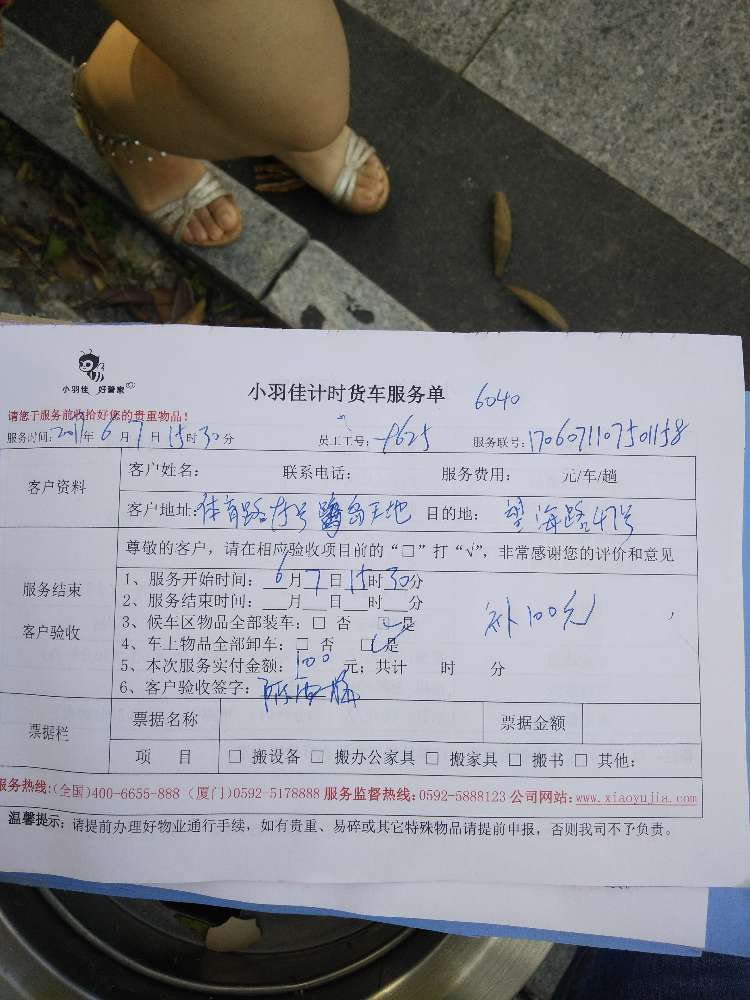 小羽佳 好管家
小羽佳计时货车服务单 6040
请您于服务前收拾好您的贵重物品!
服务时间:2017年6月7日15时30分 员工工号: 服务联号:1706071107501158
客户资料
客户姓名: 联系电话: 服务费用: 元/车/趟
客户地址:体育路 号鹭岛天地 目的地: 望海路47号
服务结束
客户验收
尊敬的客户,请在相应验收项目前的“□”打“√”,非常感谢您的评价和意见
1、服务开始时间:6月7日15时30分
2、服务结束时间:__月__日__时__分
3、候车区物品全部装车:□ 否 □是
补100元
4、车上物品全部卸车:□ 否 □是
5、本次服务实付金额:100元;共计 时 分
6、客户验收签字:
票据栏
票据名称 票据金额
项 目 □ 搬设备 □ 搬办公家具 □ 搬家具 □ 搬书 □ 其他:
服务热线:(全国)400-6655-888 (厦门)0592-5178888 服务监督热线:0592-5888123 公司网站:www.xiaoyujia.com
温馨提示:请提前办理好物业通行手续,如有贵重、易碎或其它特殊物品请提前申报,否则我司不予负责。